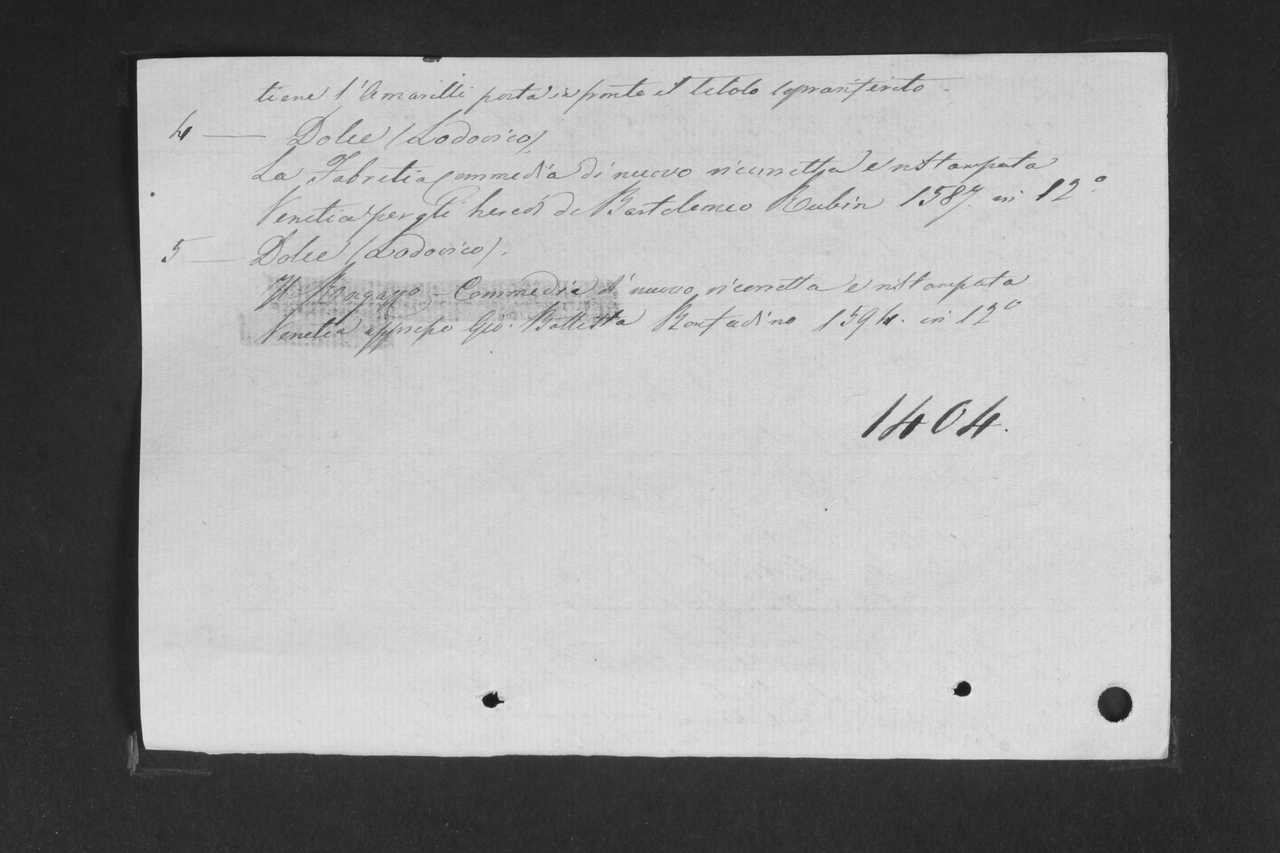 tiene l'Amarilli porta in fronte il titolo sopranferito.
4 — Dolce (Lodovico)
La Fabritia Commedia di nuovo ricorretta e ristampata
Venetia per gli heredi di Bartolomeo Rubin 1587. in 12°
5 — Dolce (Lodovico).
Il Ragazzo, - Commedia di nuovo ricorretta e ristampata
Venetia appresso Gio. Battista Bonfadino 1594. in 12°
1404.